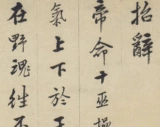 招辭
帝命十巫操
氣上下於
在野魂徃不